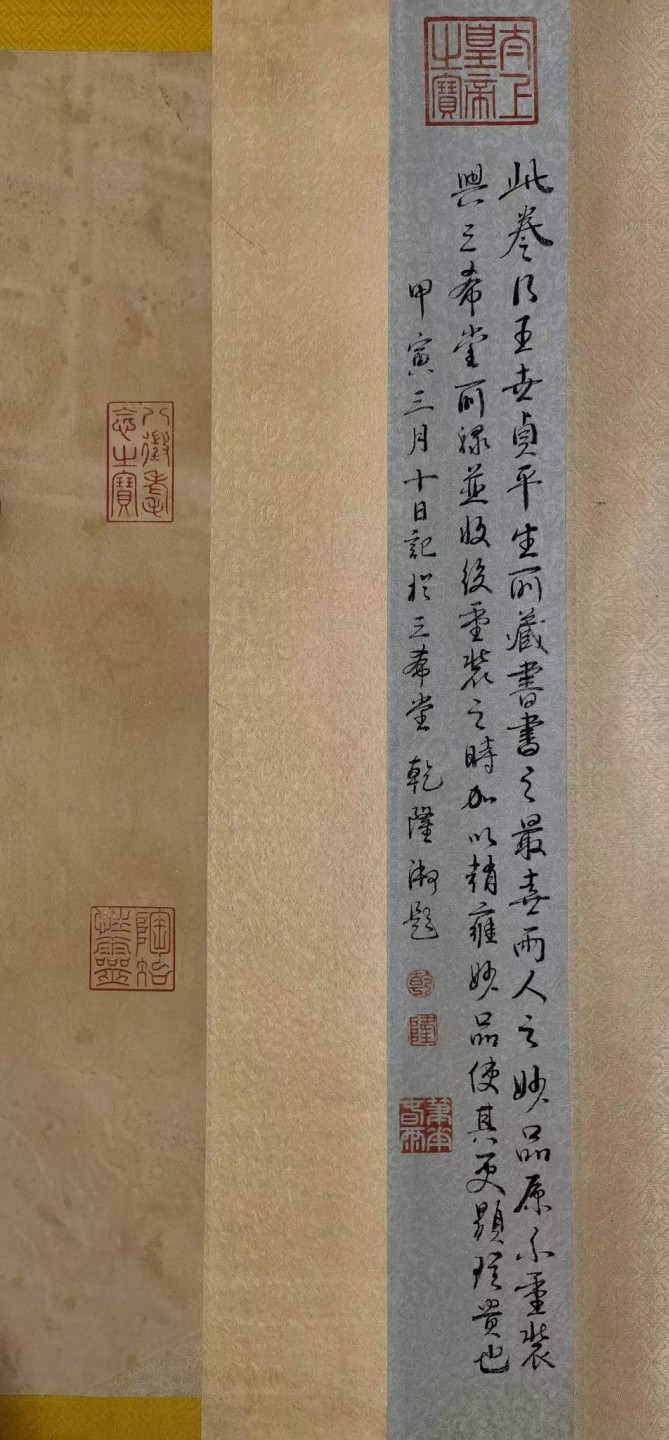 太上皇帝之寶
此卷乃王世貞平生所藏書畫之最喜兩人之妙品原不重裝
與三希堂所緣並收後重裝之時加以趙雍妙品使其更顯珍貴也
甲寅三月十日記於三希堂 乾隆御題
乾
隆
筆華春雨
八徵耄念之寶
陶冶性靈